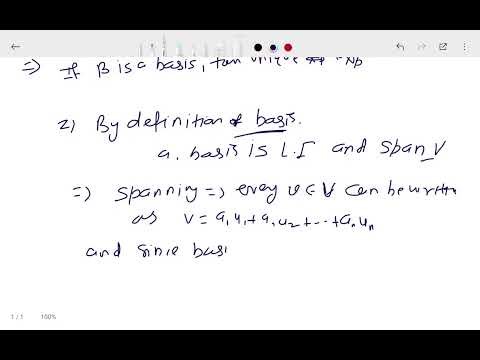 ⇒ If B is a basis, then unique exp
2) By definition of basis.
a. basis is L.I and span V
⇒ Spanning ⇒ every v ∈ V can be written
as v = a₁u₁ + a₂u₂ + ... + aₙuₙ
and since basi
1 / 1 160%